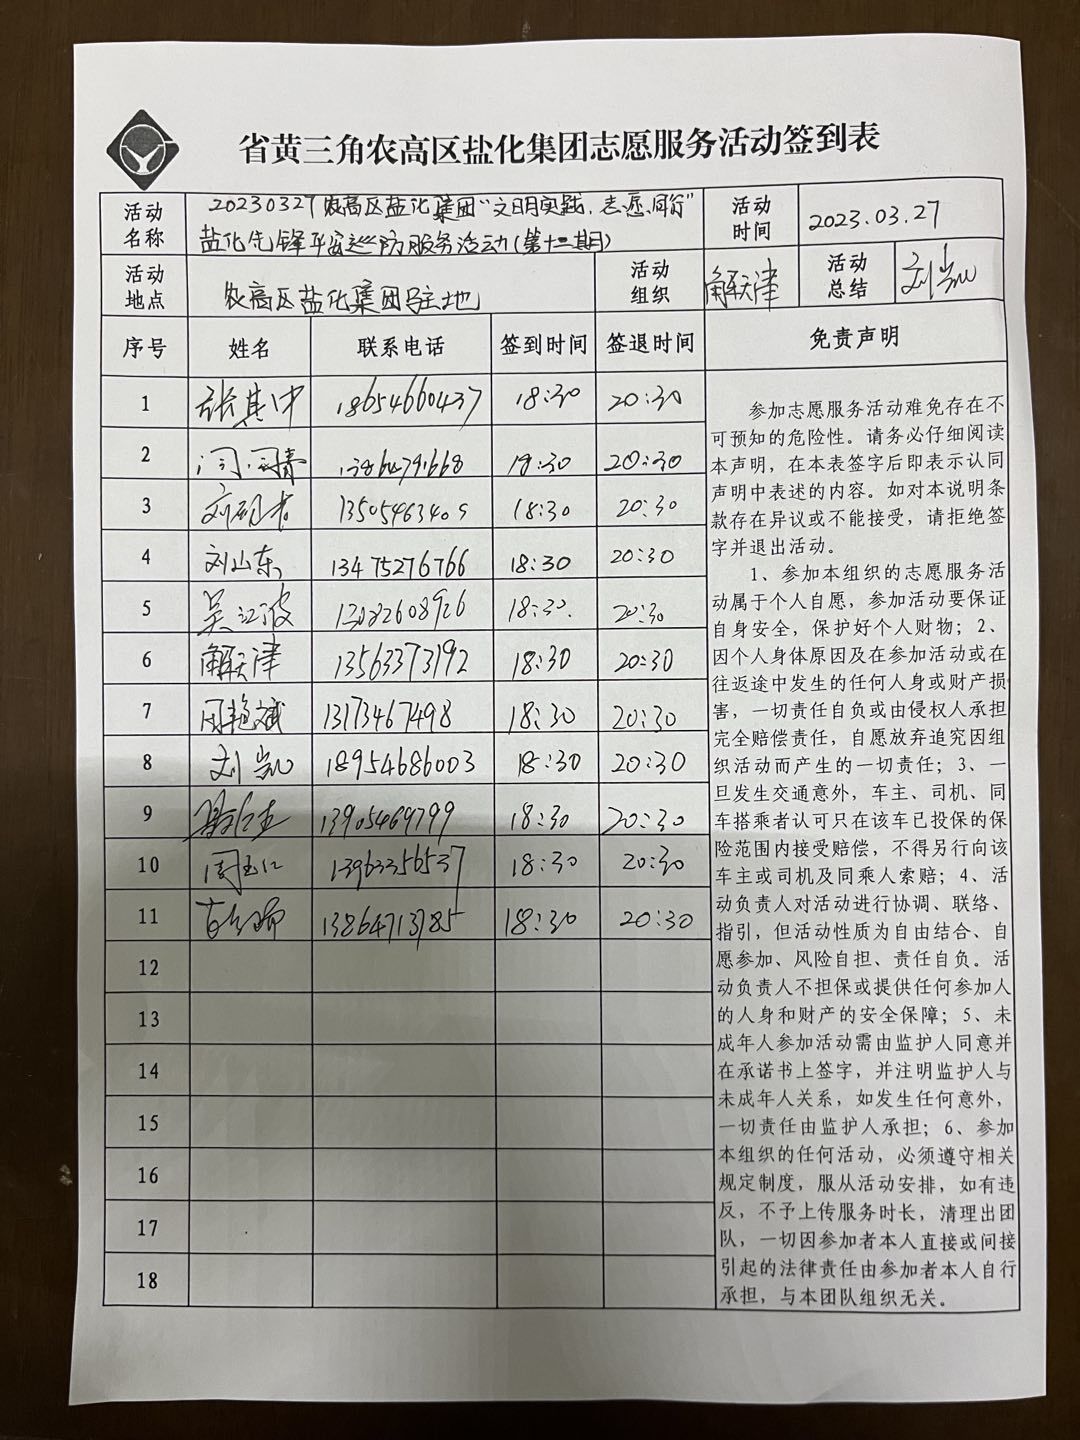 省黄三角农高区盐化集团志愿服务活动签到表
活动名称 20230327农高区盐化集团“文明实践,志愿同行” 活动时间 2023.03.27
盐化先锋平安巡防服务活动(第十二期)
活动地点 农高区盐化集团驻地 活动组织 解天津 活动总结 刘凯
序号 姓名 联系电话 签到时间 签退时间 免责声明
1 张其中 18654660437 18:30 20:30
2 闫 13864791668 18:30 20:30
3 刘 13505463409 18:30 20:30
4 刘山东 13475276766 18:30 20:30
5 吴江波 13082608926 18:30 20:30
6 解天津 13563373192 18:30 20:30
7 周艳斌 13173467498 18:30 20:30
8 刘凯 18954686003 18:30 20:30
9 13905469799 18:30 20:30
10 周玉仁 13963356537 18:30 20:30
11 13864713785 18:30 20:30
12
13
14
15
16
17
18
参加志愿服务活动难免存在不
可预知的危险性。请务必仔细阅读
本声明，在本表签字后即表示认同
声明中表述的内容。如对本说明条
款存在异议或不能接受，请拒绝签
字并退出活动。
1、参加本组织的志愿服务活
动属于个人自愿，参加活动要保证
自身安全，保护好个人财物；2、
因个人身体原因及在参加活动或在
往返途中发生的任何人身或财产损
害，一切责任自负或由侵权人承担
完全赔偿责任，自愿放弃追究因组
织活动而产生的一切责任；3、一
旦发生交通意外，车主、司机、同
车搭乘者认可只在该车已投保的保
险范围内接受赔偿，不得另行向该
车主或司机及同乘人索赔；4、活
动负责人对活动进行协调、联络、
指引，但活动性质为自由结合、自
愿参加、风险自担、责任自负。活
动负责人不担保或提供任何参加人
的人身和财产的安全保障；5、未
成年人参加活动需由监护人同意并
在承诺书上签字，并注明监护人与
未成年人关系，如发生任何意外，
一切责任由监护人承担；6、参加
本组织的任何活动，必须遵守相关
规定制度，服从活动安排，如有违
反，不予上传服务时长，清理出团
队，一切因参加者本人直接或间接
引起的法律责任由参加者本人自行
承担，与本团队组织无关。